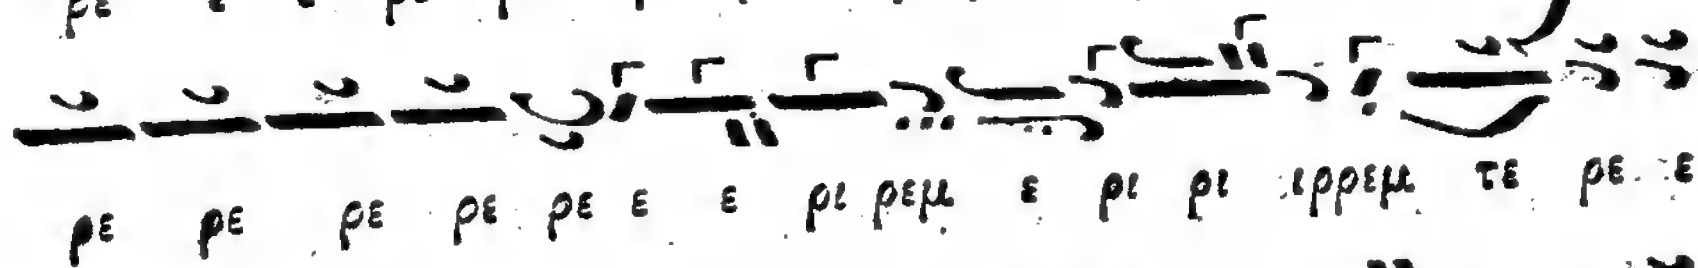 ρε ρε ρε ρε ρε ε ε ρι ρεμ ε ρι ρι ιρρεμ τε ρε ε